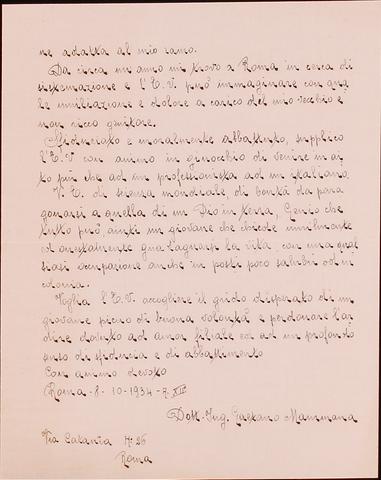 ne adatta al mio ramo.
Da circa un anno mi trovo a Roma in cerca di
sistemazione e l'E.V. può immaginare con qua
le umiliazione e dolore a carico del mio vecchio e
non ricco genitore.
e moralmente abbattuto, supplico
l'E.V con animo in ginocchio di venire in aiu
to più che ad un professionista ad un italiano.
V.E. di statura mondiale di bontà da para
gonarsi a quella di un Dio in terra, Genio che
tutto può aiuti un giovane che chiede umilmente
ed onestamente guadagnarsi la vita con una qual
siasi occupazione anche in posti poco salubri od in
colonia.
Voglia l'E.V. accogliere il grido disperato di un
giovane pieno di buona volontà e perdonare l'ar
dire dovuto ad amor filiale ed ad un profondo
senso di sfiducia e di abbattimento
Con animo devoto
Roma - 8 - 10 - 1934 - XII
Dott. Ing. Gaetano Mammana
Via Catania N. 26
Roma